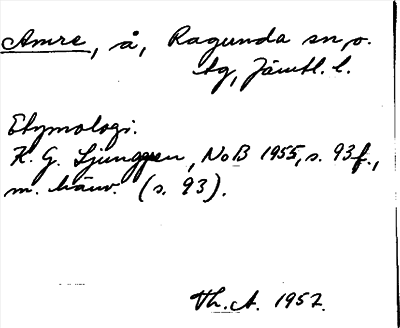 Amre, å, Ragunda sn, o.
tg, Jämtl. l.
Etymologi.
K. G. Ljunggren, NoB 1955, s. 93f.,
m. hänv. (s. 93).
Th. A. 1957.